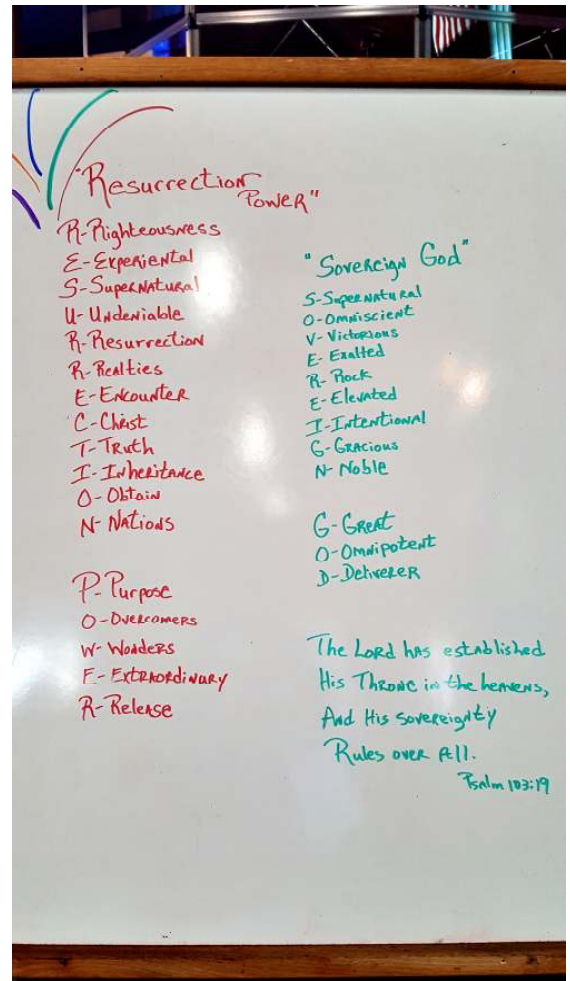 "Resurrection
Power"
R-Righteousness
E-Experiental
S-Supernatural
U-Undeniable
R-Resurrection
R-Realties
E-Encounter
C-Christ
T-Truth
I-Inheritance
O-Obtain
N-Nations
P-Purpose
O-Overcomers
W-Wonders
E-Extraordinary
R-Release
"Sovereign God"
S-Supernatural
O-Omniscient
V-Victorious
E-Exalted
R-Rock
E-Elevated
I-Intentional
G-Gracious
N-Noble
G-Great
O-Omnipotent
D-Deliverer
The Lord has established
His Throne in the heavens,
And His sovereignty
Rules over All.
Psalm 103:19